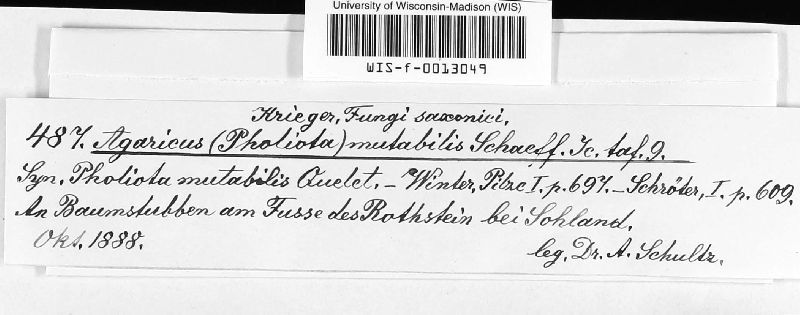 University of Wisconsin-Madison (WIS)
WIS-f-0013049
Krieger, Fungi saxonici.
487. Agaricus (Pholiota) mutabilis Schaeff. Ic. taf. 9.
Syn. Pholiota mutabilis Quelet. – Winter, Pilze I. p. 697. – Schröter, I. p. 609.
An Baumstubben am Fusse des Rothstein bei Sohland.
Okt. 1888.
leg. Dr. A. Schultz.